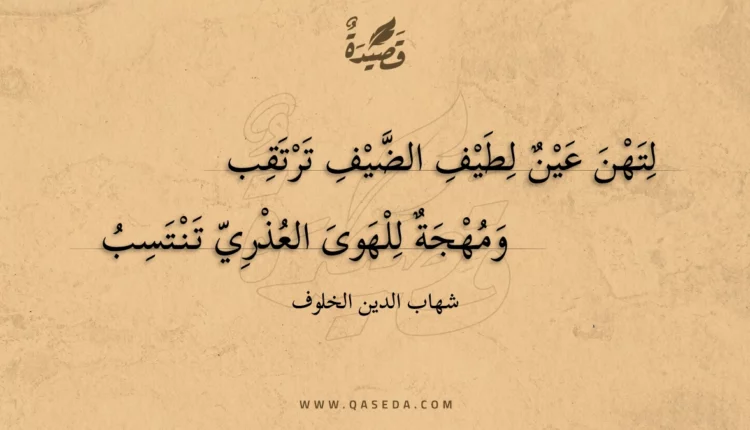 قَصِيْدَةٌ
لِتَهْنَ عَيْنٌ لِطَيْفِ الضَّيْفِ تَرْتَقِب
وَمُهْجَةٌ لِلْهَوىَ العُذْرِيّ تَنْتَسِبُ
شهاب الدين الخلوف
WWW.QASEDA.COM